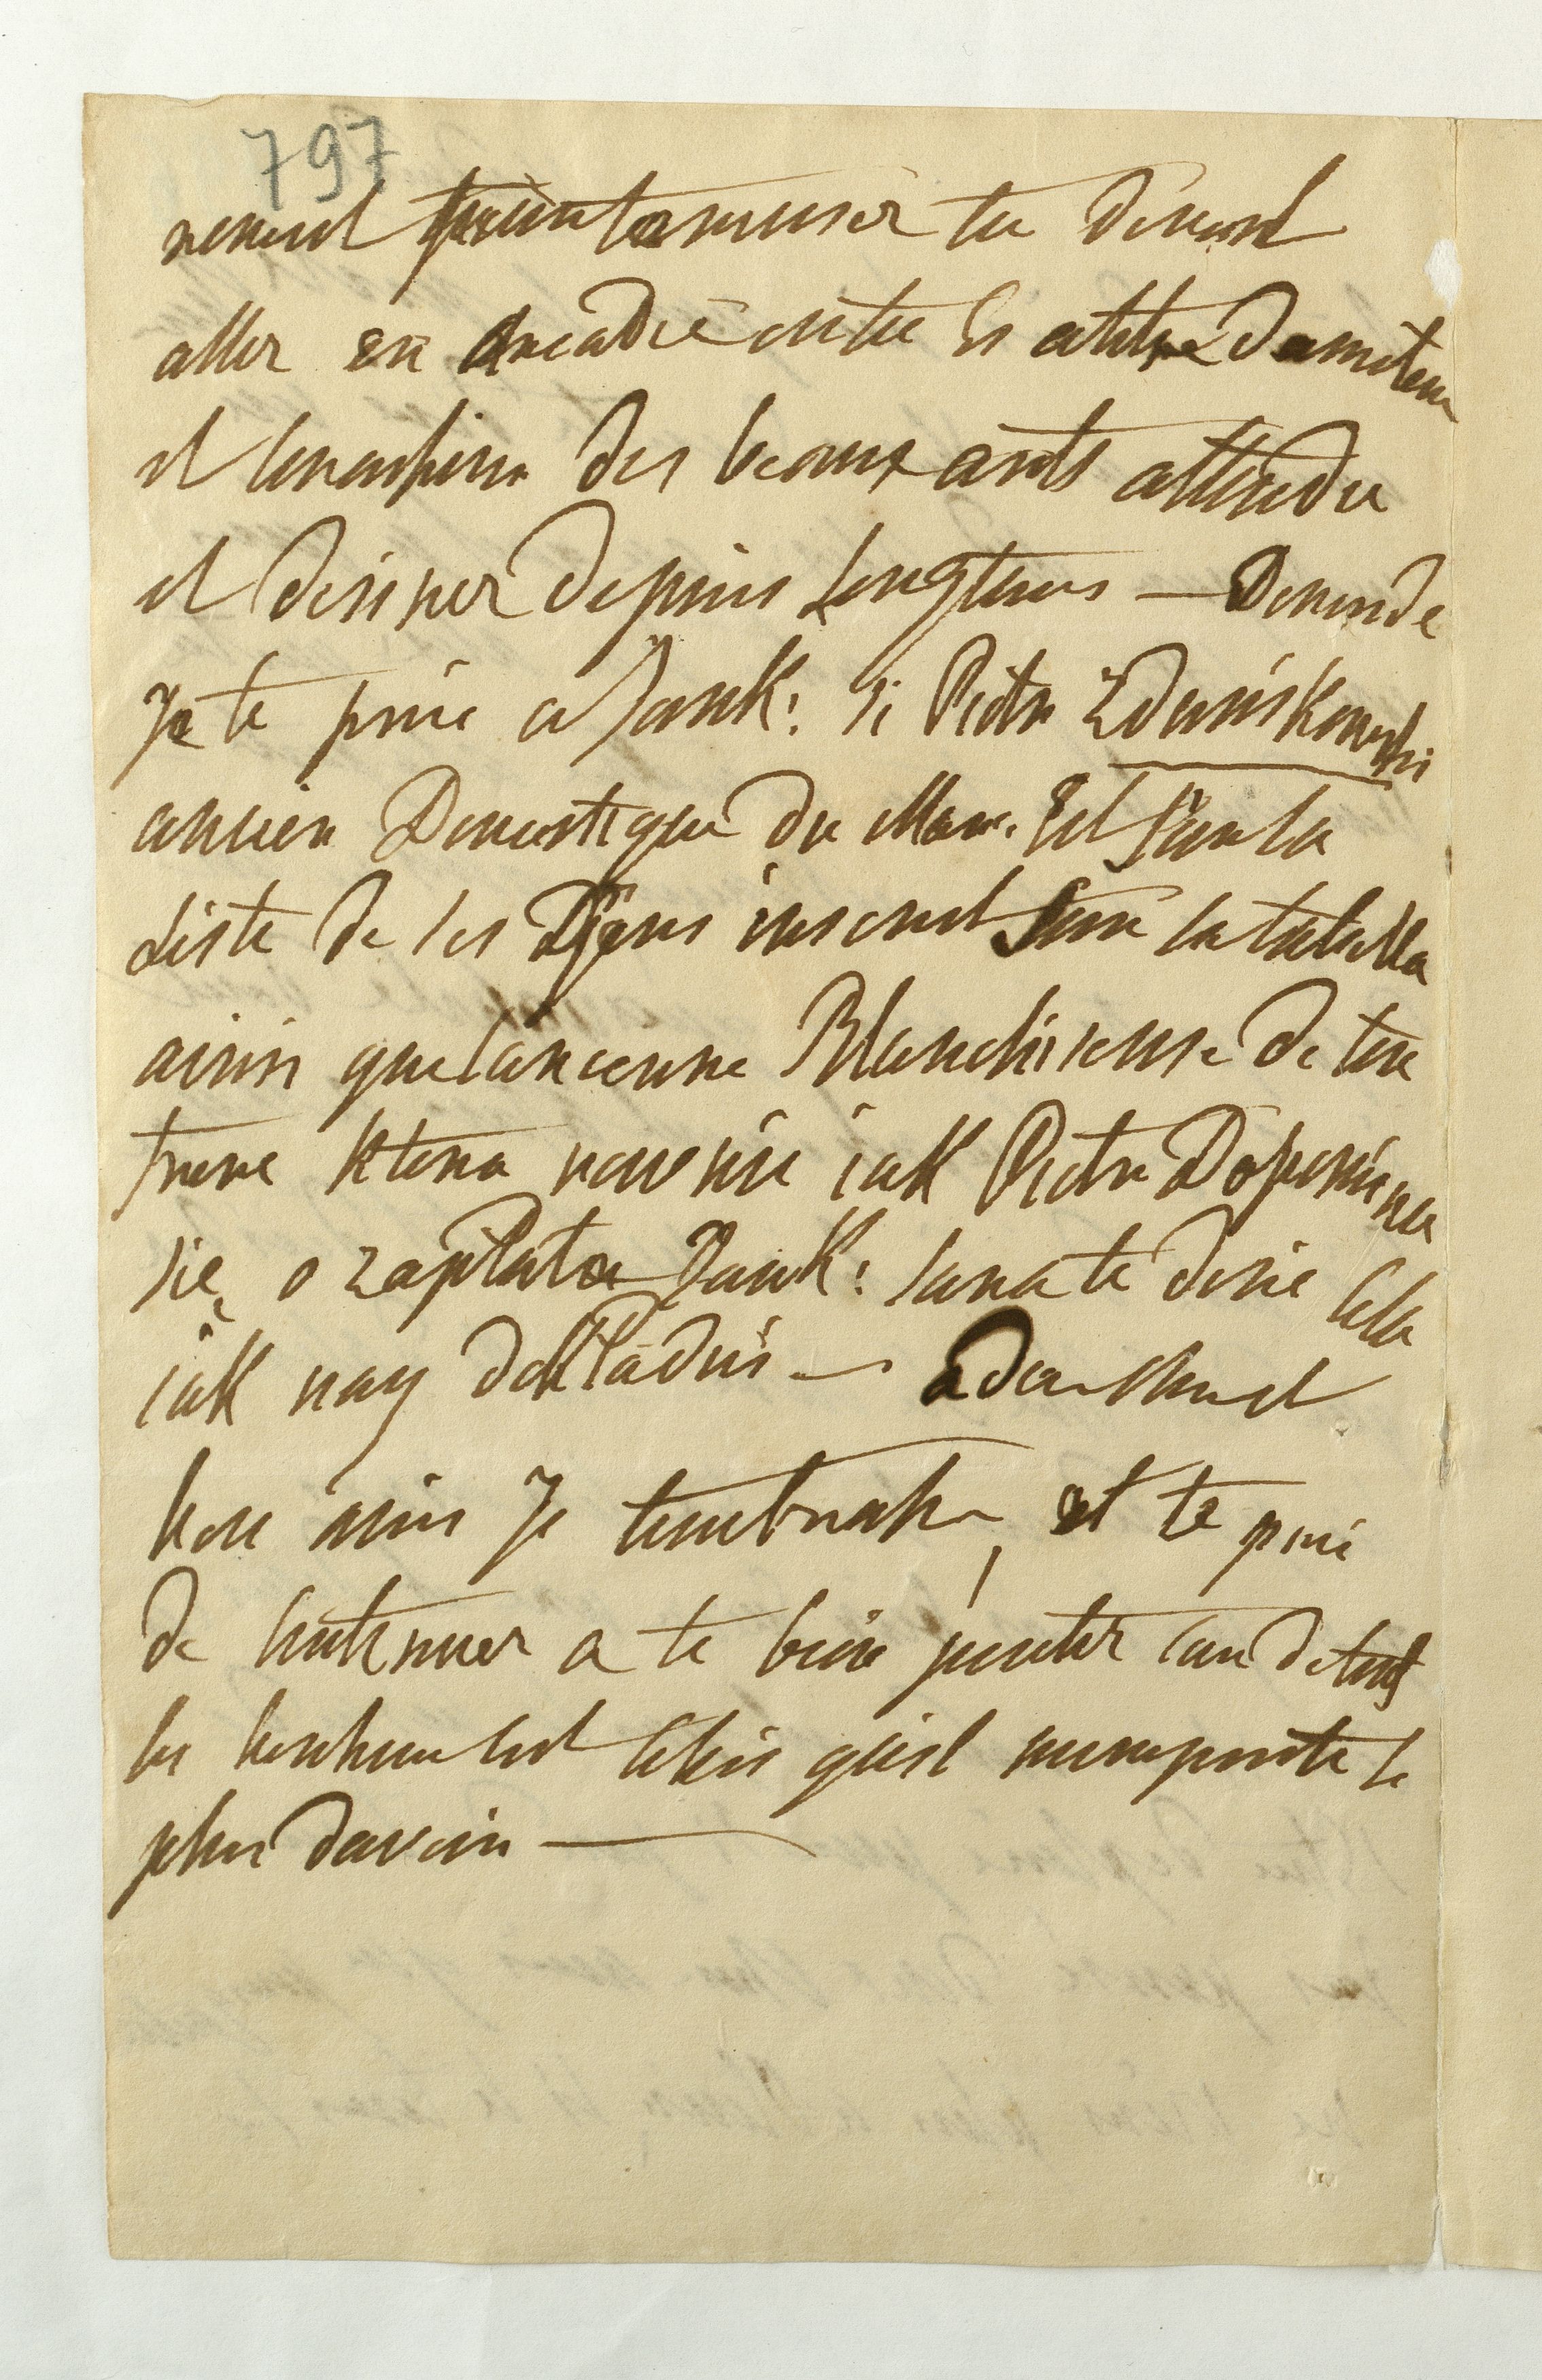 797
vement tu devrai
aller en Arcadie ou tu es attendu
et des beaux arts attendu
et desirer depuis Longtems — Demende
Je te prie a Jank: si Piotr Zdunskowski
ancien Domestique du Mar. Est sur la
Liste de les Djens inscrit sur la tabella
ainsi que l'ancienne Blanchiseuse de ton
frere ktora rownie iak Piotr Dopomina
się o zaplata Jank: saura te dire cela
iak nay dokładni — adeu
bon ami Je tembrasse, et te prie
de continuer a te bien porter car de tous
les bonheur c'est celui qu'il mimporte le
plus davoir —